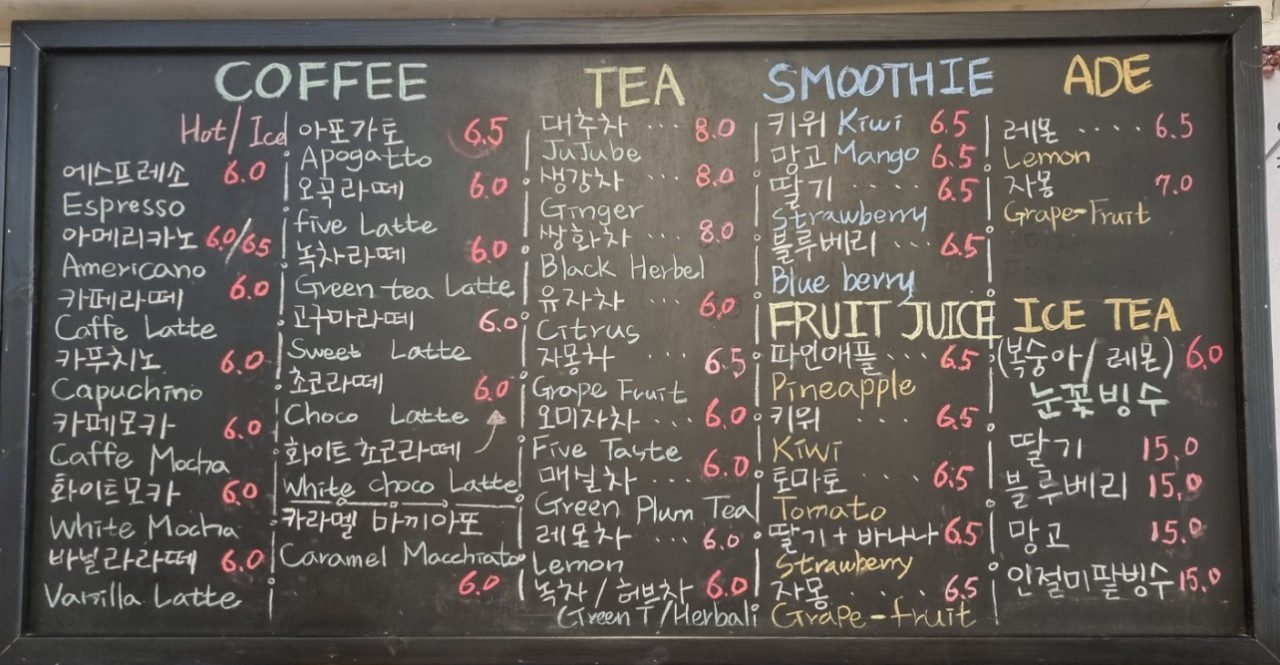 COFFEE
Hot/Ice
에스프레소 6.0
Espresso
아메리카노 6.0/6.5
Americano
카페라떼 6.0
Caffe Latte
카푸치노 6.0
Capuchino
카페모카 6.0
Caffe Mocha
화이트모카 6.0
White Mocha
바닐라라떼 6.0
Vanilla Latte
아포가토 6.5
Apogatto
오곡라떼 6.0
five Latte
녹차라떼 6.0
Green tea Latte
고구마라떼 6.0
Sweet Latte
초코라떼 6.0
Choco Latte
화이트쵸코라떼
White choco Latte
카라멜 마끼아또
Caramel Macchiato
6.0
TEA
대추차 ... 8.0
JuJube
생강차 ... 8.0
Ginger
쌍화차 ... 8.0
Black Herbel
유자차 ... 6.0
Citrus
자몽차 ... 6.5
Grape Fruit
오미자차 ... 6.0
Five Taste
매실차 ... 6.0
Green Plum Tea
레몬차 ... 6.0
Lemon
녹차/허브차 6.0
(Green T/Herbal)
SMOOTHIE
키위 Kiwi 6.5
망고 Mango 6.5
딸기 .... 6.5
Strawberry
블루베리 ... 6.5
Blue berry
FRUIT JUICE
파인애플 ... 6.5
Pineapple
키위 .... 6.5
Kiwi
토마토 .. 6.5
Tomato
딸기+바나나 6.5
Strawberry
자몽 .... 6.5
Grape-fruit
ADE
레몬 .... 6.5
Lemon
자몽 7.0
Grape-Fruit
ICE TEA
(복숭아/레몬) 6.0
눈꽃빙수
딸기 15.0
블루베리 15.0
망고 15.0
인절미팥빙수 15.0